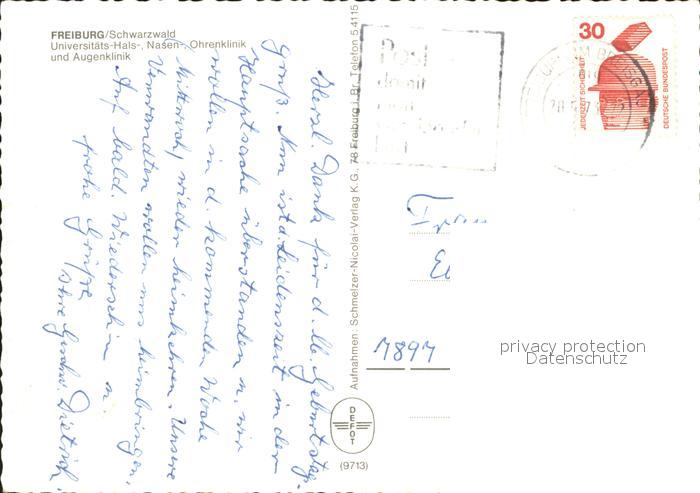 FREIBURG/Schwarzwald
Universitäts-Hals-, Nasen-, Ohrenklinik
und Augenklinik
Herzl. Dank für d. lb. Geburtstag-
gruß. Nun ist d. Leidenszeit in der
Hauptsache überstanden u. wir
wollen in d. kommenden Woche
Mittwoch, wieder heimkehren. Unsere
Verwandten wollen uns heimbringen.
Auf bald. Wiedersehn u.
frohe Grüße
Ihre Geschw. Dietrich.
Aufnahmen: Schmelzer-Nicolai-Verlag K.G., 78 Freiburg i. Br. Telefon 54115
DEFOT
(9713)
30
JEDERZEIT SICHERHEIT
DEUTSCHE BUNDESPOST
Frau
El
7897
privacy protection
Datenschutz